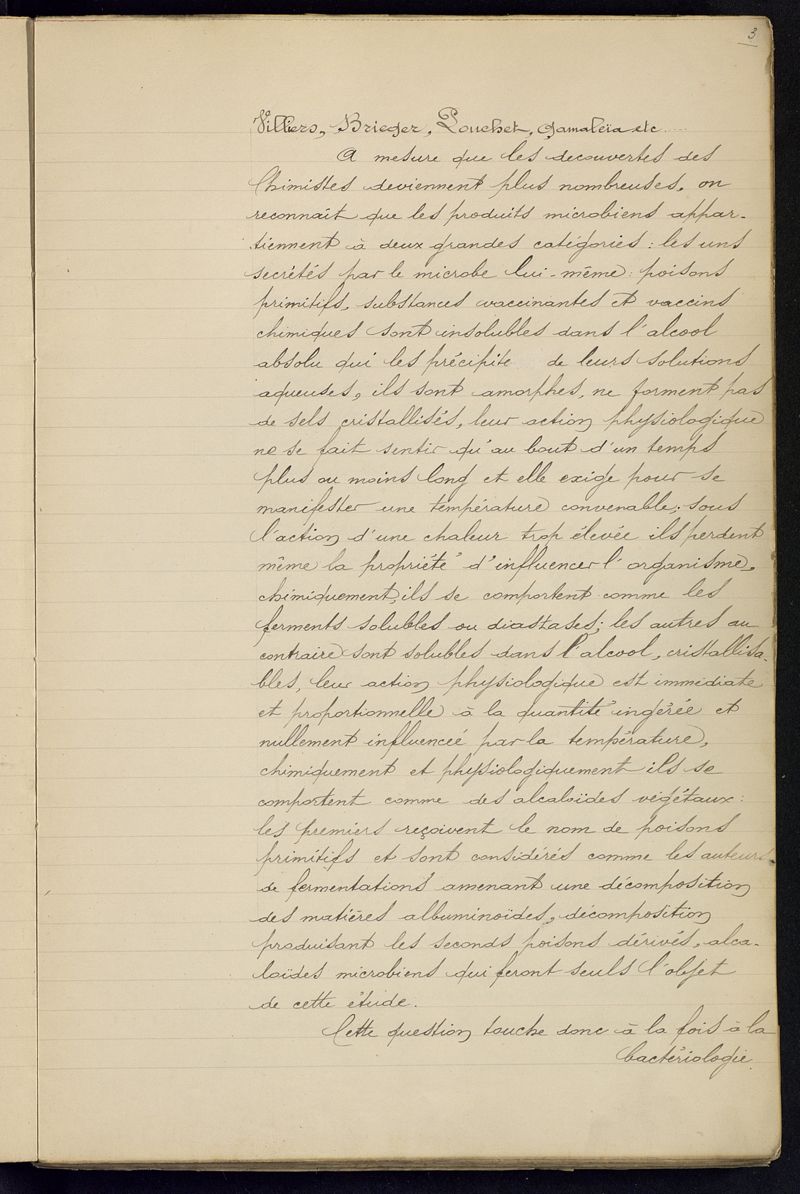 3
Villiers, Brieger, Pouchet, Gamaleïa etc....
A mesure que les decouvertes des
Chimistes deviennent plus nombreuses, on
reconnaît que les produits microbiens appar-
tiennent à deux grandes catégories : les uns
secrétés par le microbe lui-même : poisons
primitifs, substances vaccinantes et vaccins
chimiques sont insolubles dans l'alcool
absolu qui les précipite de leurs solutions
aqueuses, ils sont amorphes, ne forment pas
de sels cristallisés, leur action physiologique
ne se fait sentir qu'au bout d'un temps
plus ou moins long et elle exige pour se
manifester une température convenable ; sous
l'action d'une chaleur trop élevée ils perdent
même la propriété d'influencer l'organisme.
chimiquement, ils se comportent comme les
ferments solubles ou diastases ; les autres au
contraire sont solubles dans l'alcool, cristallisa-
bles, leur action physiologique est immédiate
et proportionnelle à la quantité ingérée et
nullement influencée par la température,
chimiquement et physiologiquement ils se
comportent comme des alcaloïdes végétaux :
les premiers reçoivent le nom de poisons
primitifs et sont considérés comme les auteurs
de fermentations amenant une décomposition
des matières albuminoïdes, décomposition
produisant les seconds poisons dérivés, alca-
loïdes microbiens qui feront seuls l'objet
de cette étude.
Cette question touche donc à la fois à la
bactériologie